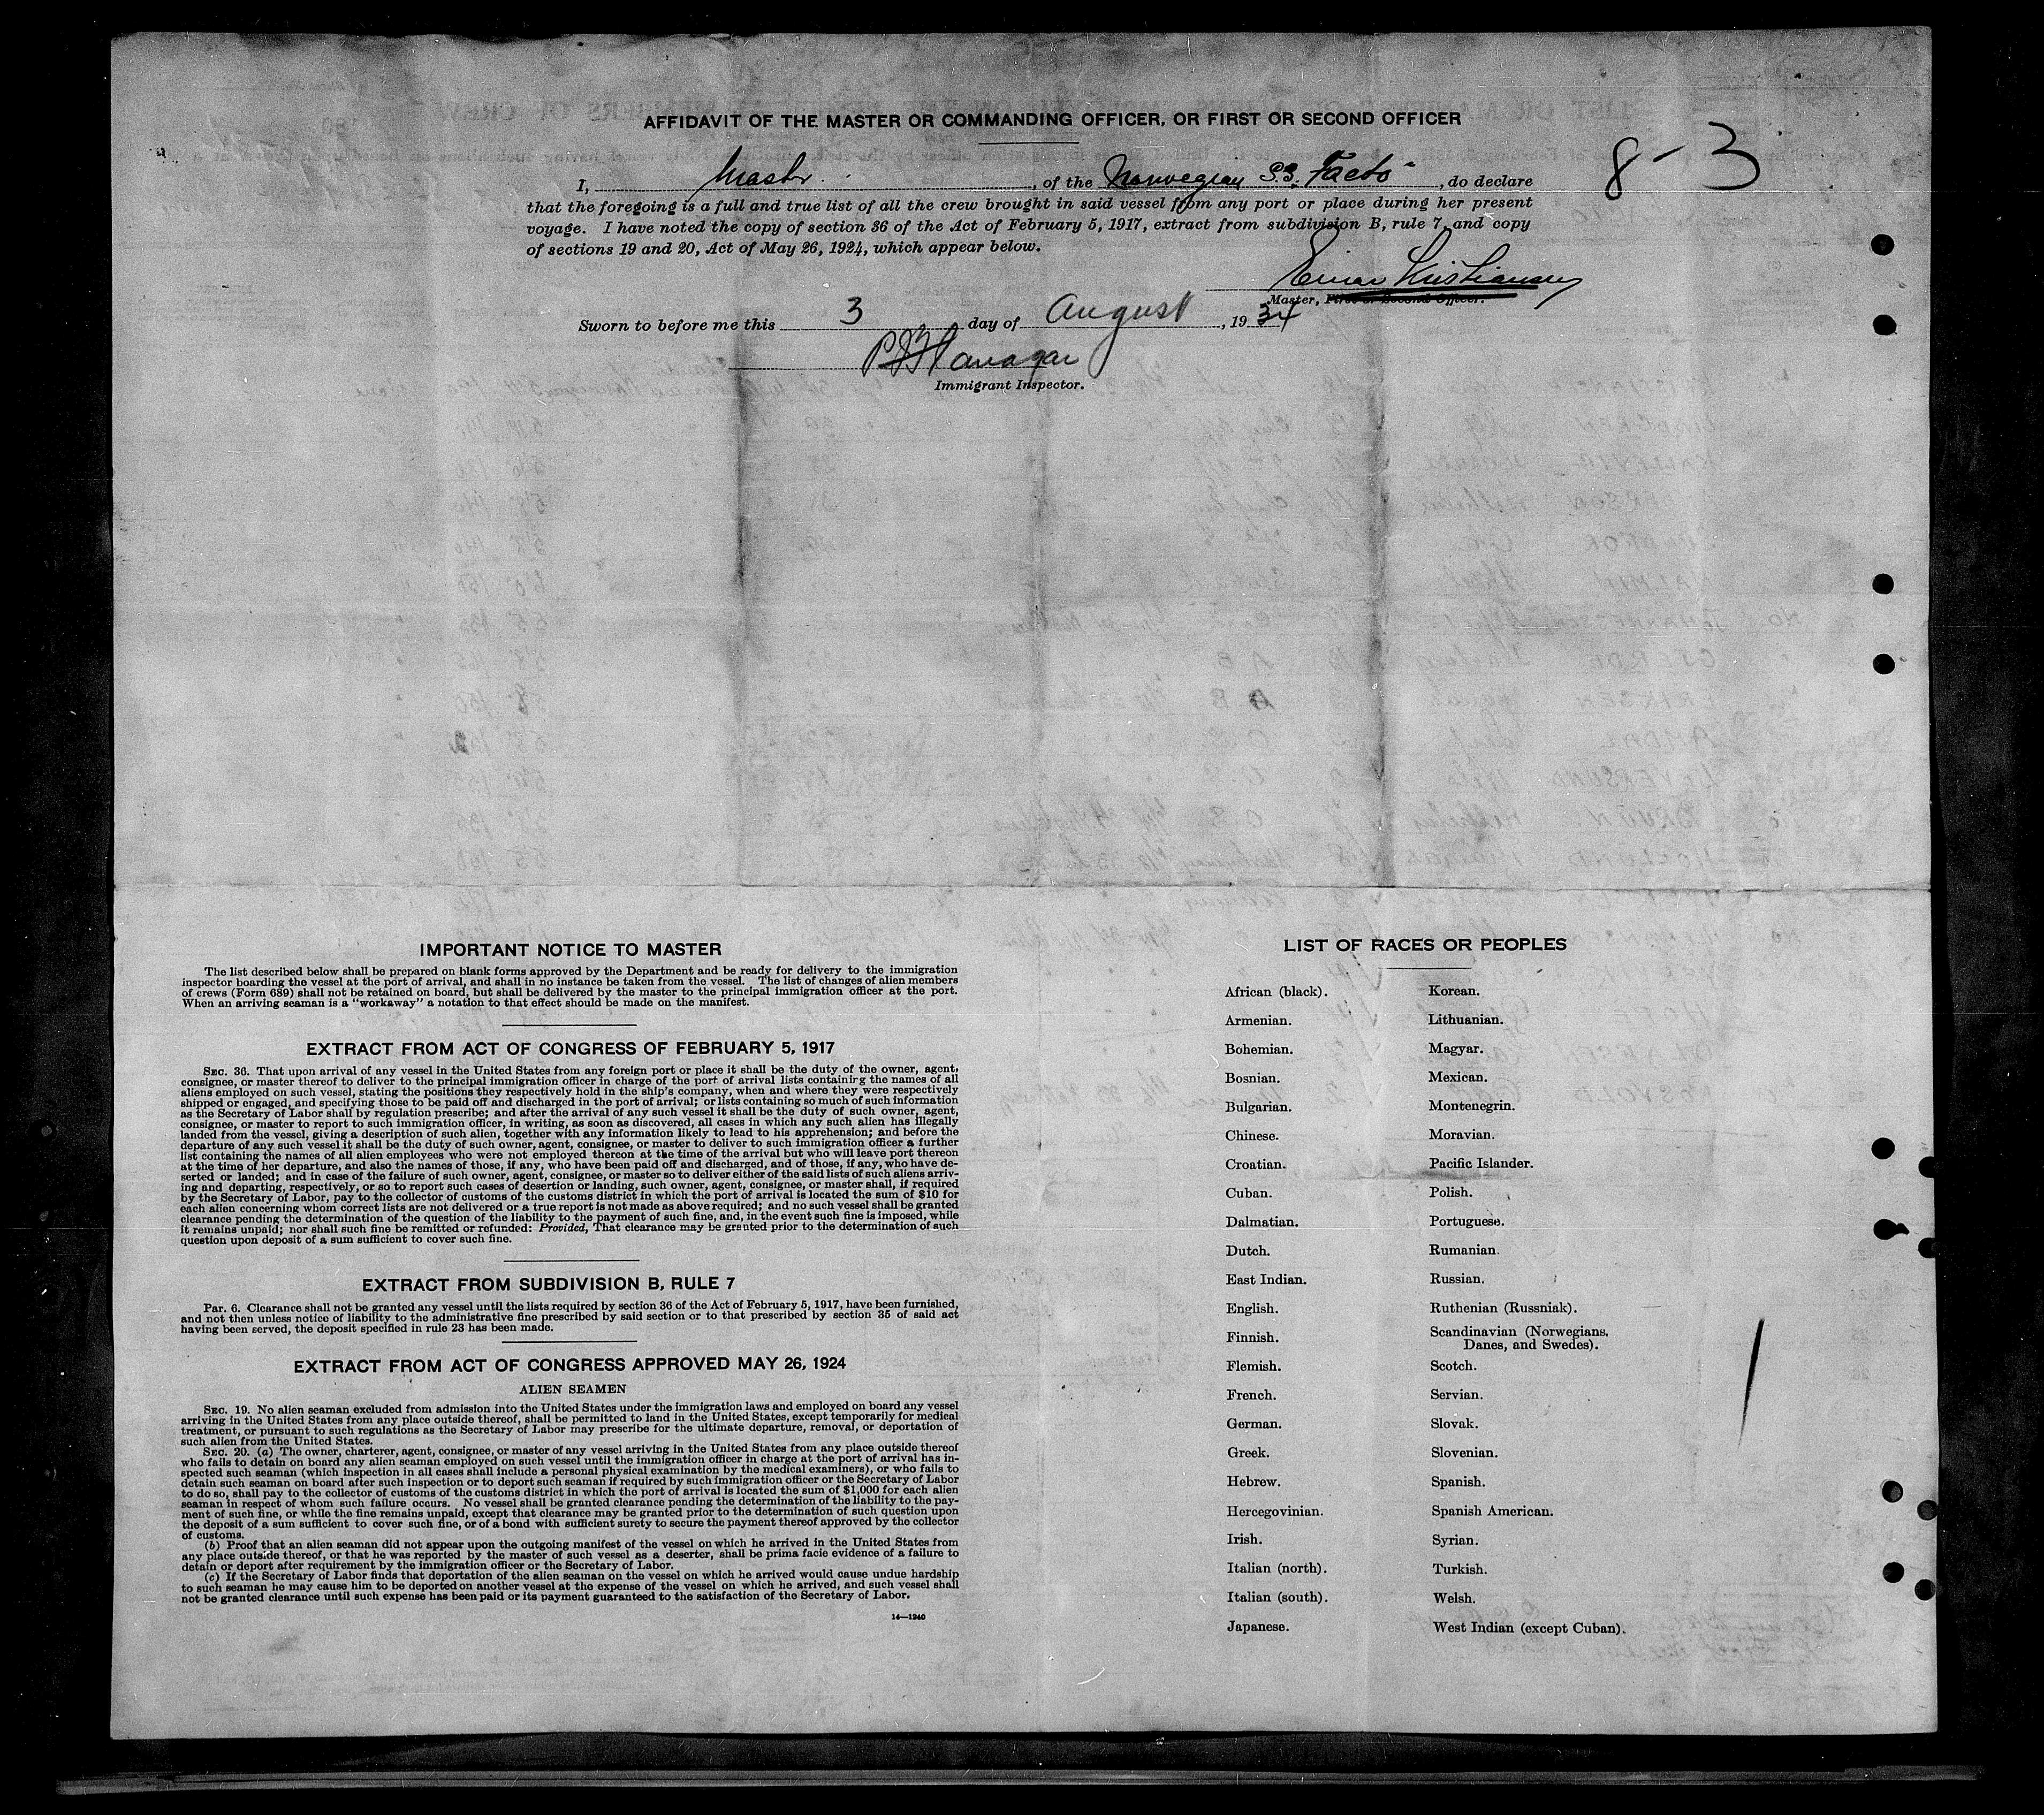 AFFIDAVIT OF THE MASTER OR COMMANDING OFFICER, OR FIRST OR SECOND OFFICER
8-3
I, Master, of the Norwegian S.S. Facto, do declare
that the foregoing is a full and true list of all the crew brought in said vessel from any port or place during her present
voyage. I have noted the copy of section 36 of the Act of February 5, 1917, extract from subdivision B, rule 7, and copy
of sections 19 and 20, Act of May 26, 1924, which appear below.
Einar Kristiansen
Master, First or Second Officer.
Sworn to before me this 3 day of August, 1934
Flanagan
Immigrant Inspector.
IMPORTANT NOTICE TO MASTER
The list described below shall be prepared on blank forms approved by the Department and be ready for delivery to the immigration
inspector boarding the vessel at the port of arrival, and shall in no instance be taken from the vessel. The list of changes of alien members
of crews (Form 689) shall not be retained on board, but shall be delivered by the master to the principal immigration officer at the port.
When an arriving seaman is a "workaway" a notation to that effect should be made on the manifest.
EXTRACT FROM ACT OF CONGRESS OF FEBRUARY 5, 1917
SEC. 36. That upon arrival of any vessel in the United States from any foreign port or place it shall be the duty of the owner, agent,
consignee, or master thereof to deliver to the principal immigration officer in charge of the port of arrival lists containing the names of all
aliens employed on such vessel, stating the positions they respectively hold in the ship's company, when and where they were respectively
shipped or engaged, and specifying those to be paid off and discharged in the port of arrival; or lists containing so much of such information
as the Secretary of Labor shall by regulation prescribe; and after the arrival of any such vessel it shall be the duty of such owner, agent,
consignee, or master to report to such immigration officer, in writing, as soon as discovered, all cases in which any such alien has illegally
landed from the vessel, giving a description of such alien, together with any information likely to lead to his apprehension; and before the
departure of any such vessel it shall be the duty of such owner, agent, consignee, or master to deliver to such immigration officer a further
list containing the names of all alien employees who were not employed thereon at the time of the arrival but who will leave port thereon
at the time of her departure, and also the names of those, if any, who have been paid off and discharged, and of those, if any, who have de-
serted or landed; and in case of the failure of such owner, agent, consignee, or master so to deliver either of the said lists of such aliens arriv-
ing and departing, respectively, or so to report such cases of desertion or landing, such owner, agent, consignee, or master shall, if required
by the Secretary of Labor, pay to the collector of customs of the customs district in which the port of arrival is located the sum of $10 for
each alien concerning whom correct lists are not delivered or a true report is not made as above required; and no such vessel shall be granted
clearance pending the determination of the question of the liability to the payment of such fine, and, in the event such fine is imposed, while
it remains unpaid; nor shall such fine be remitted or refunded: Provided, That clearance may be granted prior to the determination of such
question upon deposit of a sum sufficient to cover such fine.
EXTRACT FROM SUBDIVISION B, RULE 7
PAR. 6. Clearance shall not be granted any vessel until the lists required by section 36 of the Act of February 5, 1917, have been furnished,
and not then unless notice of liability to the administrative fine prescribed by said section or to that prescribed by section 35 of said act
having been served, the deposit specified in rule 23 has been made.
EXTRACT FROM ACT OF CONGRESS APPROVED MAY 26, 1924
ALIEN SEAMEN
SEC. 19. No alien seaman excluded from admission into the United States under the immigration laws and employed on board any vessel
arriving in the United States from any place outside thereof, shall be permitted to land in the United States, except temporarily for medical
treatment, or pursuant to such regulations as the Secretary of Labor may prescribe for the ultimate departure, removal, or deportation of
such alien from the United States.
SEC. 20. (a) The owner, charterer, agent, consignee, or master of any vessel arriving in the United States from any place outside thereof
who fails to detain on board any alien seaman employed on such vessel until the immigration officer in charge at the port of arrival has in-
spected such seaman (which inspection in all cases shall include a personal physical examination by the medical examiners), or who fails to
detain such seaman on board after such inspection or to deport such seaman if required by such immigration officer or the Secretary of Labor
to do so, shall pay to the collector of customs of the customs district in which the port of arrival is located the sum of $1,000 for each alien
seaman in respect of whom such failure occurs. No vessel shall be granted clearance pending the determination of the liability to the pay-
ment of such fine, or while the fine remains unpaid, except that clearance may be granted prior to the determination of such question upon
the deposit of a sum sufficient to cover such fine, or of a bond with sufficient surety to secure the payment thereof approved by the collector
of customs.
(b) Proof that an alien seaman did not appear upon the outgoing manifest of the vessel on which he arrived in the United States from
any place outside thereof, or that he was reported by the master of such vessel as a deserter, shall be prima facie evidence of a failure to
detain or deport after requirement by the immigration officer or the Secretary of Labor.
(c) If the Secretary of Labor finds that deportation of the alien seaman on the vessel on which he arrived would cause undue hardship
to such seaman he may cause him to be deported on another vessel at the expense of the vessel on which he arrived, and such vessel shall
not be granted clearance until such expense has been paid or its payment guaranteed to the satisfaction of the Secretary of Labor.
14—1240
LIST OF RACES OR PEOPLES
African (black).
Armenian.
Bohemian.
Bosnian.
Bulgarian.
Chinese.
Croatian.
Cuban.
Dalmatian.
Dutch.
East Indian.
English.
Finnish.
Flemish.
French.
German.
Greek.
Hebrew.
Hercegovinian.
Irish.
Italian (north).
Italian (south).
Japanese.
Korean.
Lithuanian.
Magyar.
Mexican.
Montenegrin.
Moravian.
Pacific Islander.
Polish.
Portuguese.
Rumanian.
Russian.
Ruthenian (Russniak).
Scandinavian (Norwegians,
Danes, and Swedes).
Scotch.
Servian.
Slovak.
Slovenian.
Spanish.
Spanish American.
Syrian.
Turkish.
Welsh.
West Indian (except Cuban).